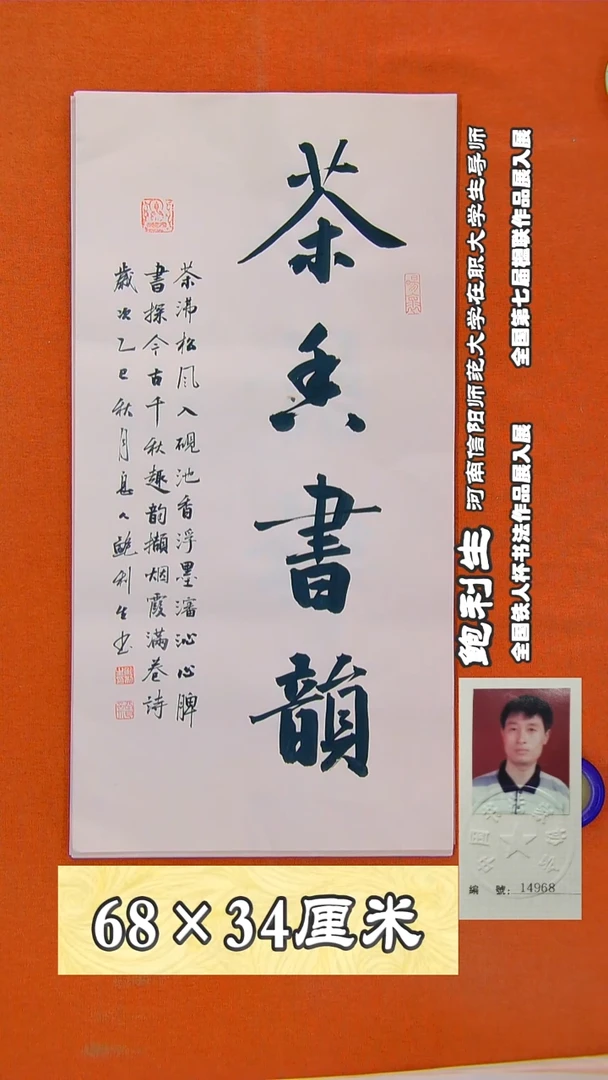 茶香書韻
茶沸松风入硯池香浮墨瀋沁心脾
書探今古千秋趣韵擷烟霞滿卷詩
歲次乙巳秋月息人鲍利生书
鲍利生 河南信阳师范大学在职大学生导师
全国铁人杯书法作品展入展 全国第七届楹联作品展入展
編 號: 14968
68×34厘米